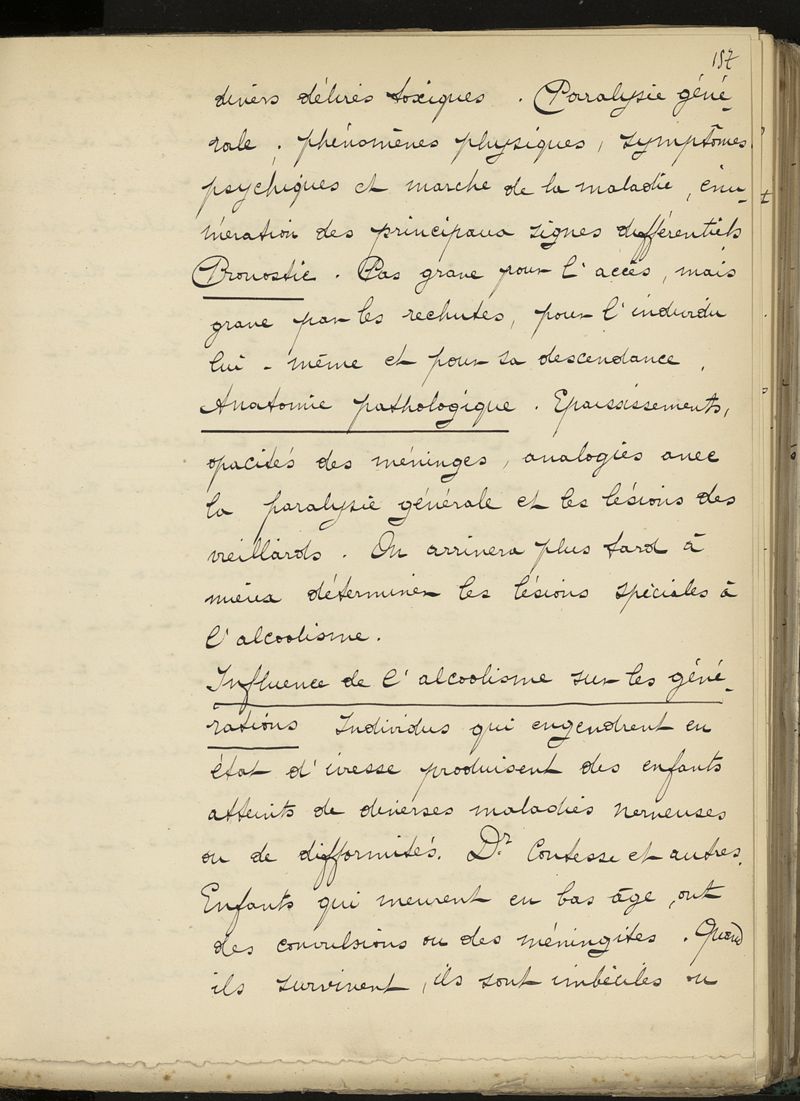 157
divers délires toxiques. Paralysie géné-
rale. phénomènes physiques, symptômes
psychiques et marche de la maladie, énu-
mération des principaux signes différentiels
Pronostic. Pas grave pour l'accès, mais
grave par les rechutes, pour l'individu
lui-même et pour sa descendance.
Anatomie pathologique. Epaississements,
opacités des méninges, analogies avec
la paralysie générale et les lésions des
vieillards. On arrivera plus tard à
mieux déterminer les lésions spéciales à
l'alcoolisme.
Influence de l'alcoolisme sur les géné-
rations Individus qui engendrent en
état d'ivresse produisent des enfants
atteints de diverses maladies nerveuses
ou de difformités. Dr. Contesse et autres.
Enfants qui meurent en bas âge, ont
des convulsions ou des méningites. Quand
ils survivent, ils sont imbéciles ou